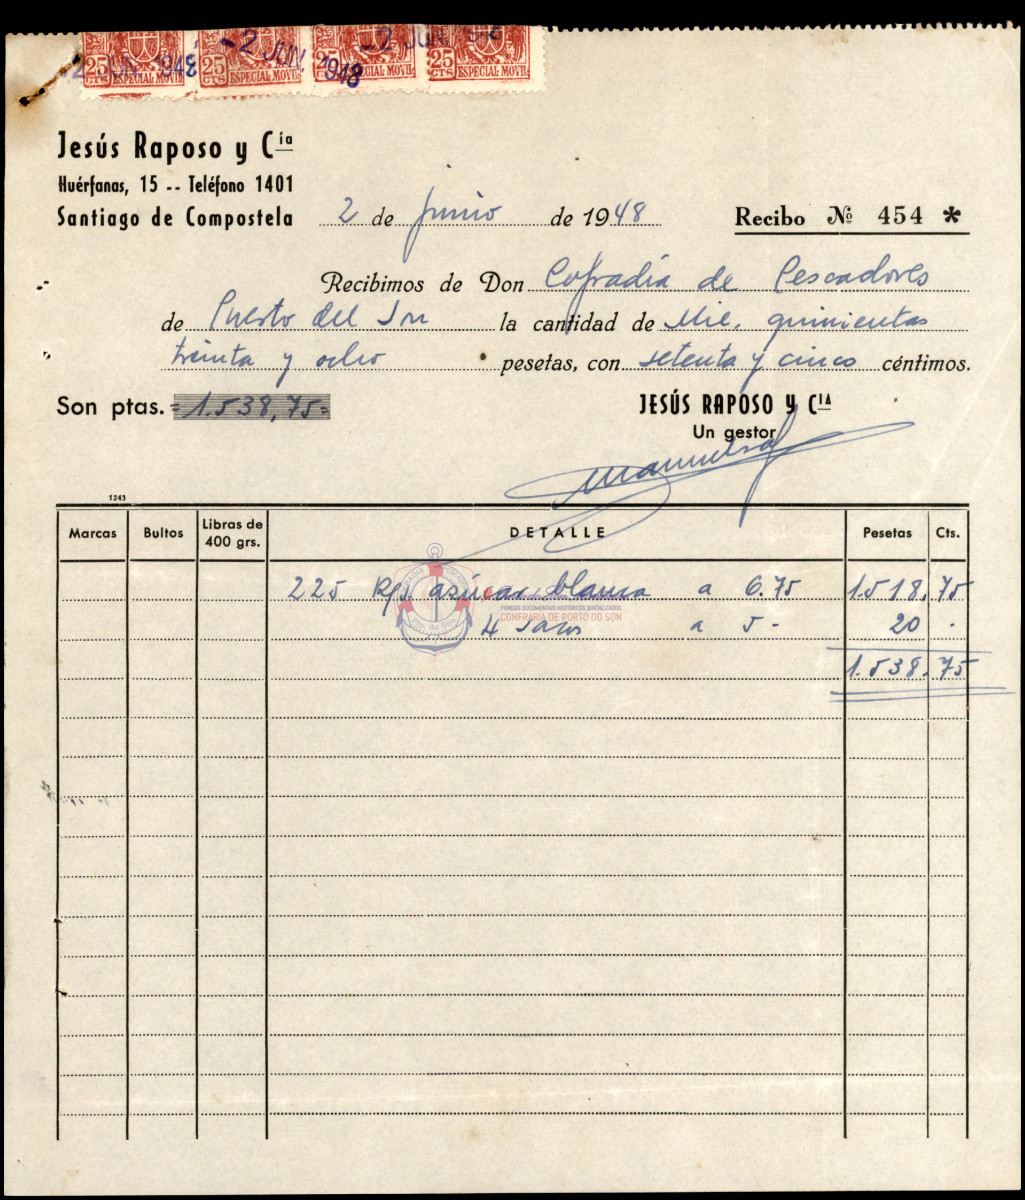 25 CTS ESPECIAL MOVIL 25 CTS ESPECIAL MOVIL 25 CTS ESPECIAL MOVIL 25 CTS ESPECIAL MOVIL
2 JUN. 1948 -2 JUN. 1948 -2 JUN. 1948
Jesús Raposo y Cía
Huérfanas, 15 -- Teléfono 1401
Santiago de Compostela 2 de junio de 1948 Recibo Nº 454 *
Recibimos de Don Cofradía de Pescadores
de Puerto del Son la cantidad de Mil, quinientas
treinta y ocho pesetas, con setenta y cinco céntimos.
Son ptas. =1.538,75=
JESÚS RAPOSO Y CÍA
Un gestor
1243
Marcas Bultos Libras de 400 grs. DETALLE Pesetas Cts.
225 Kgs. azúcar blanca a 6.75 1.518,75
FONDOS DOCUMENTAIS HISTÓRICOS DIXITALIZADOS
CONFRARÍA DE PORTO DO SON
4 sacos a 5- 20 .
1.538.75